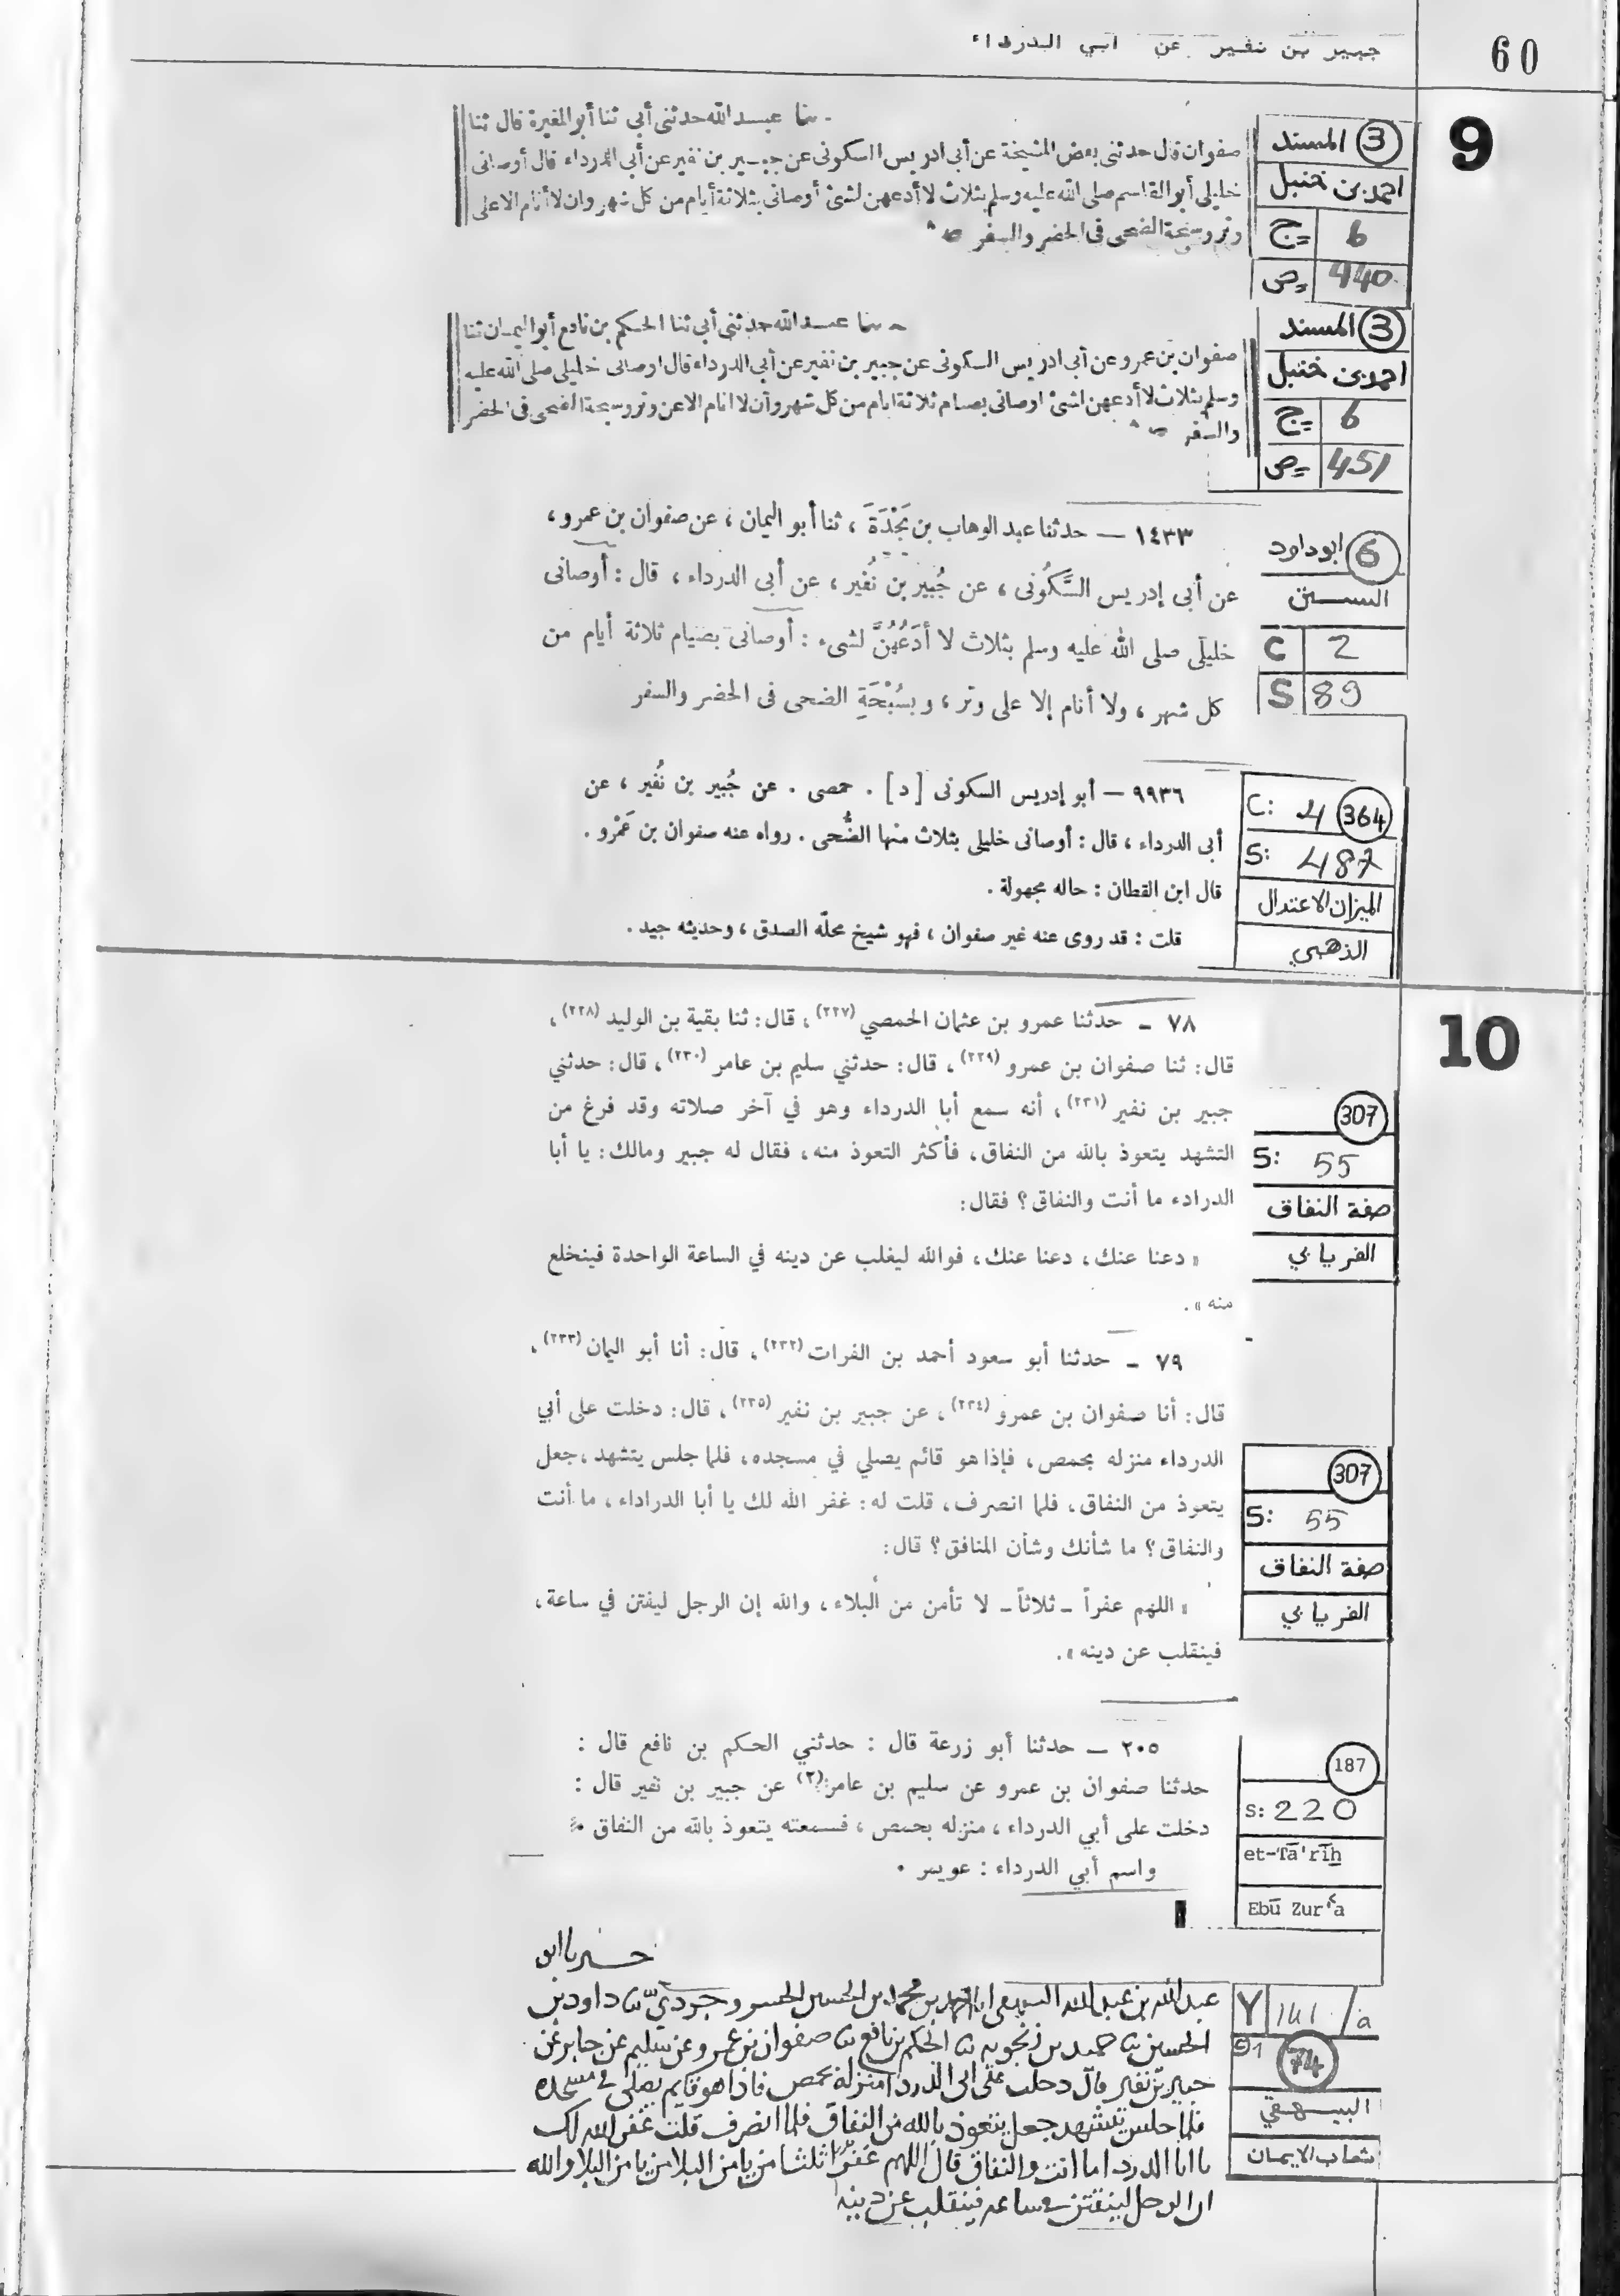 جبير بن نفير عن ابي الدرداء
60
9
3 المسند
احمد بن حنبل
ج= 6
ص= 440
ـ ثنا عبد الله حدثنى أبى ثنا أبو المغيرة قال ثنا
صفوان قال حدثنى بعض المشيخة عن أبى ادريس السكونى عن جبير بن نفير عن أبى الدرداء قال أوصانى
خليلى أبو القاسم صلى الله عليه وسلم بثلاث لا أدعهن لشئ أوصانى بثلاثة أيام من كل شهر وان لا أنام الا على
وتر وسبحة الضحى فى الحضر والسفر
3 المسند
احمد بن حنبل
ج= 6
ص= 451
ـ ثنا عبد الله حدثنى أبى ثنا الحكم بن نافع أبو اليمان ثنا
صفوان بن عمرو عن أبى ادريس السكونى عن جبير بن نفير عن أبى الدرداء قال اوصانى خليلى صلى الله عليه
وسلم بثلاث لا أدعهن لشئ اوصانى بصيام ثلاثة ايام من كل شهر وأن لا انام الا عن وتر وسبحة الضحى فى الحضر
والسفر
6 ابوداود
السنن
C 2
S 89
١٤٣٣ — حدثنا عبد الوهاب بن نَجْدَةَ ، ثنا أبو اليمان ، عن صفوان بن عمرو ،
عن أبى إدريس السَّكُونى ، عن جُبير بن نُفير ، عن أبى الدرداء ، قال : أوصانى
خليلى صلى الله عليه وسلم بثلاث لا أدَعُهُنَّ لشىء : أوصانى بصيام ثلاثة أيام من
كل شهر ، ولا أنام إلا على وتر ، وبسُبْحَةِ الضحى فى الحضر والسفر
C: 4 364
S: 487
الميزان الاعتدال
الذهبي
٩٩٣٦ — أبو إدريس السكونى [ د ] . حمصى . عن جُبير بن نُفير ، عن
أبى الدرداء ، قال : أوصانى خليلى بثلاث منها الضُّحى . رواه عنه صفوان بن عَمْرو .
قال ابن القطان : حاله مجهولة .
قلت : قد روى عنه غير صفوان ، فهو شيخ محلّه الصدق ، وحديثه جيد .
10
307
S: 55
صفة النفاق
الفريابي
٧٨ ـ حدثنا عمرو بن عثمان الحمصي (٢٢٧) ، قال: ثنا بقية بن الوليد (٢٢٨) ،
قال: ثنا صفوان بن عمرو (٢٢٩) ، قال: حدثني سليم بن عامر (٢٣٠) ، قال: حدثني
جبير بن نفير (٢٣١) ، أنه سمع أبا الدرداء وهو في آخر صلاته وقد فرغ من
التشهد يتعوذ بالله من النفاق، فأكثر التعوذ منه، فقال له جبير ومالك: يا أبا
الدرادء ما أنت والنفاق؟ فقال:
« دعنا عنك، دعنا عنك، فوالله ليغلب عن دينه في الساعة الواحدة فينخلع
منه ».
307
S: 55
صفة النفاق
الفريابي
٧٩ ـ حدثنا أبو سعود أحمد بن الفرات (٢٣٢) ، قال: أنا أبو اليمان (٢٣٣) ،
قال: أنا صفوان بن عمرو (٢٣٤) ، عن جبير بن نفير (٢٣٥) ، قال: دخلت على أبي
الدرداء منزله بحمص، فإذا هو قائم يصلي في مسجده، فلما جلس يتشهد، جعل
يتعوذ من النفاق، فلما انصرف، قلت له: غفر الله لك يا أبا الدراداء، ما أنت
والنفاق؟ ما شأنك وشأن المنافق؟ قال:
« اللهم عفراً ـ ثلاثاً ـ لا تأمن من البلاء، والله إن الرجل ليفتن في ساعة،
فينقلب عن دينه ».
187
s: 220
et-Tā'rīḫ
Ebū Zur'a
٢٠٥ — حدثنا أبو زرعة قال : حدثني الحكم بن نافع قال :
حدثنا صفوان بن عمرو عن سليم بن عامر (٢) عن جبير بن نفير قال :
دخلت على أبي الدرداء ، منزله بحمص ، فسمعته يتعوذ بالله من النفاق .
واسم أبي الدرداء : عويمر .
Y 141 /a
74
البيهقي
شعاب الايمان
عبد الله بن عبد الله احمد بن محمد بن الحسين الخسروجردي ثنا داود بن
الحسين ثنا حميد بن زنجويه ثنا الحكم بن نافع ثنا صفوان بن عمرو عن سليم عن جابر عن
جبير بن نفير قال دخلت على ابى الدردا منزله بحمص فاذا هو قايم يصلى فى مسجده
فلما جلس يتشهد جعل يتعوذ بالله من النفاق فلما انصرف قلت غفر الله لك
يا ابا الدردا ما انت والنفاق قال اللهم غفرا ثلثا من يامن البلا من يامن البلا والله
ان الرجل ليفتتن فى ساعه فينقلب عن دينه